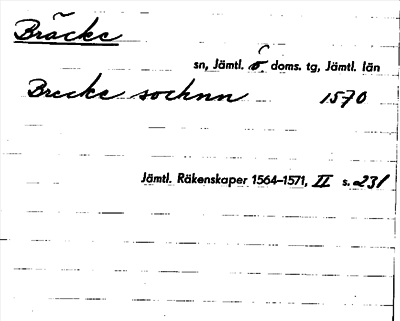 Bräcke
sn, Jämtl. ö doms. tg, Jämtl. län
Brecke sochnn 1570
Jämtl. Räkenskaper 1564–1571, II s. 231